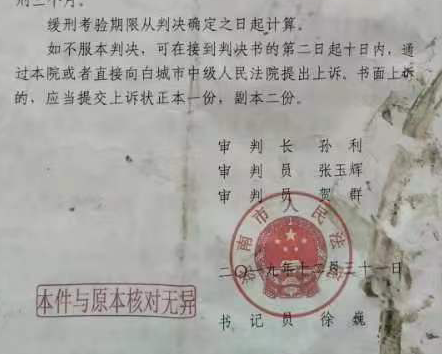 刑三个月。
缓刑考验期限从判决确定之日起计算。
如不服本判决，可在接到判决书的第二日起十日内，通
过本院或者直接向白城市中级人民法院提出上诉。书面上诉
的，应当提交上诉状正本一份，副本二份。
审 判 长 孙 利
审 判 员 张玉辉
审 判 员 贺 群
南市人民法
二〇一九年十二月三十一日
本件与原本核对无异
书 记 员 徐 巍